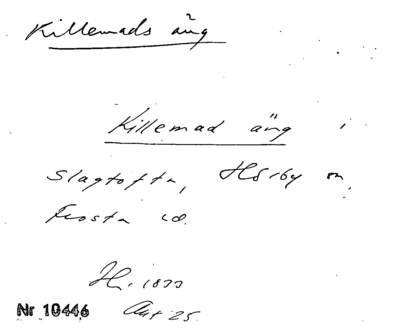 Killemads äng
Killemad äng i
Slagtofta, Hörby sn,
Frosta hd.
Hi. 1877
Nr 10446